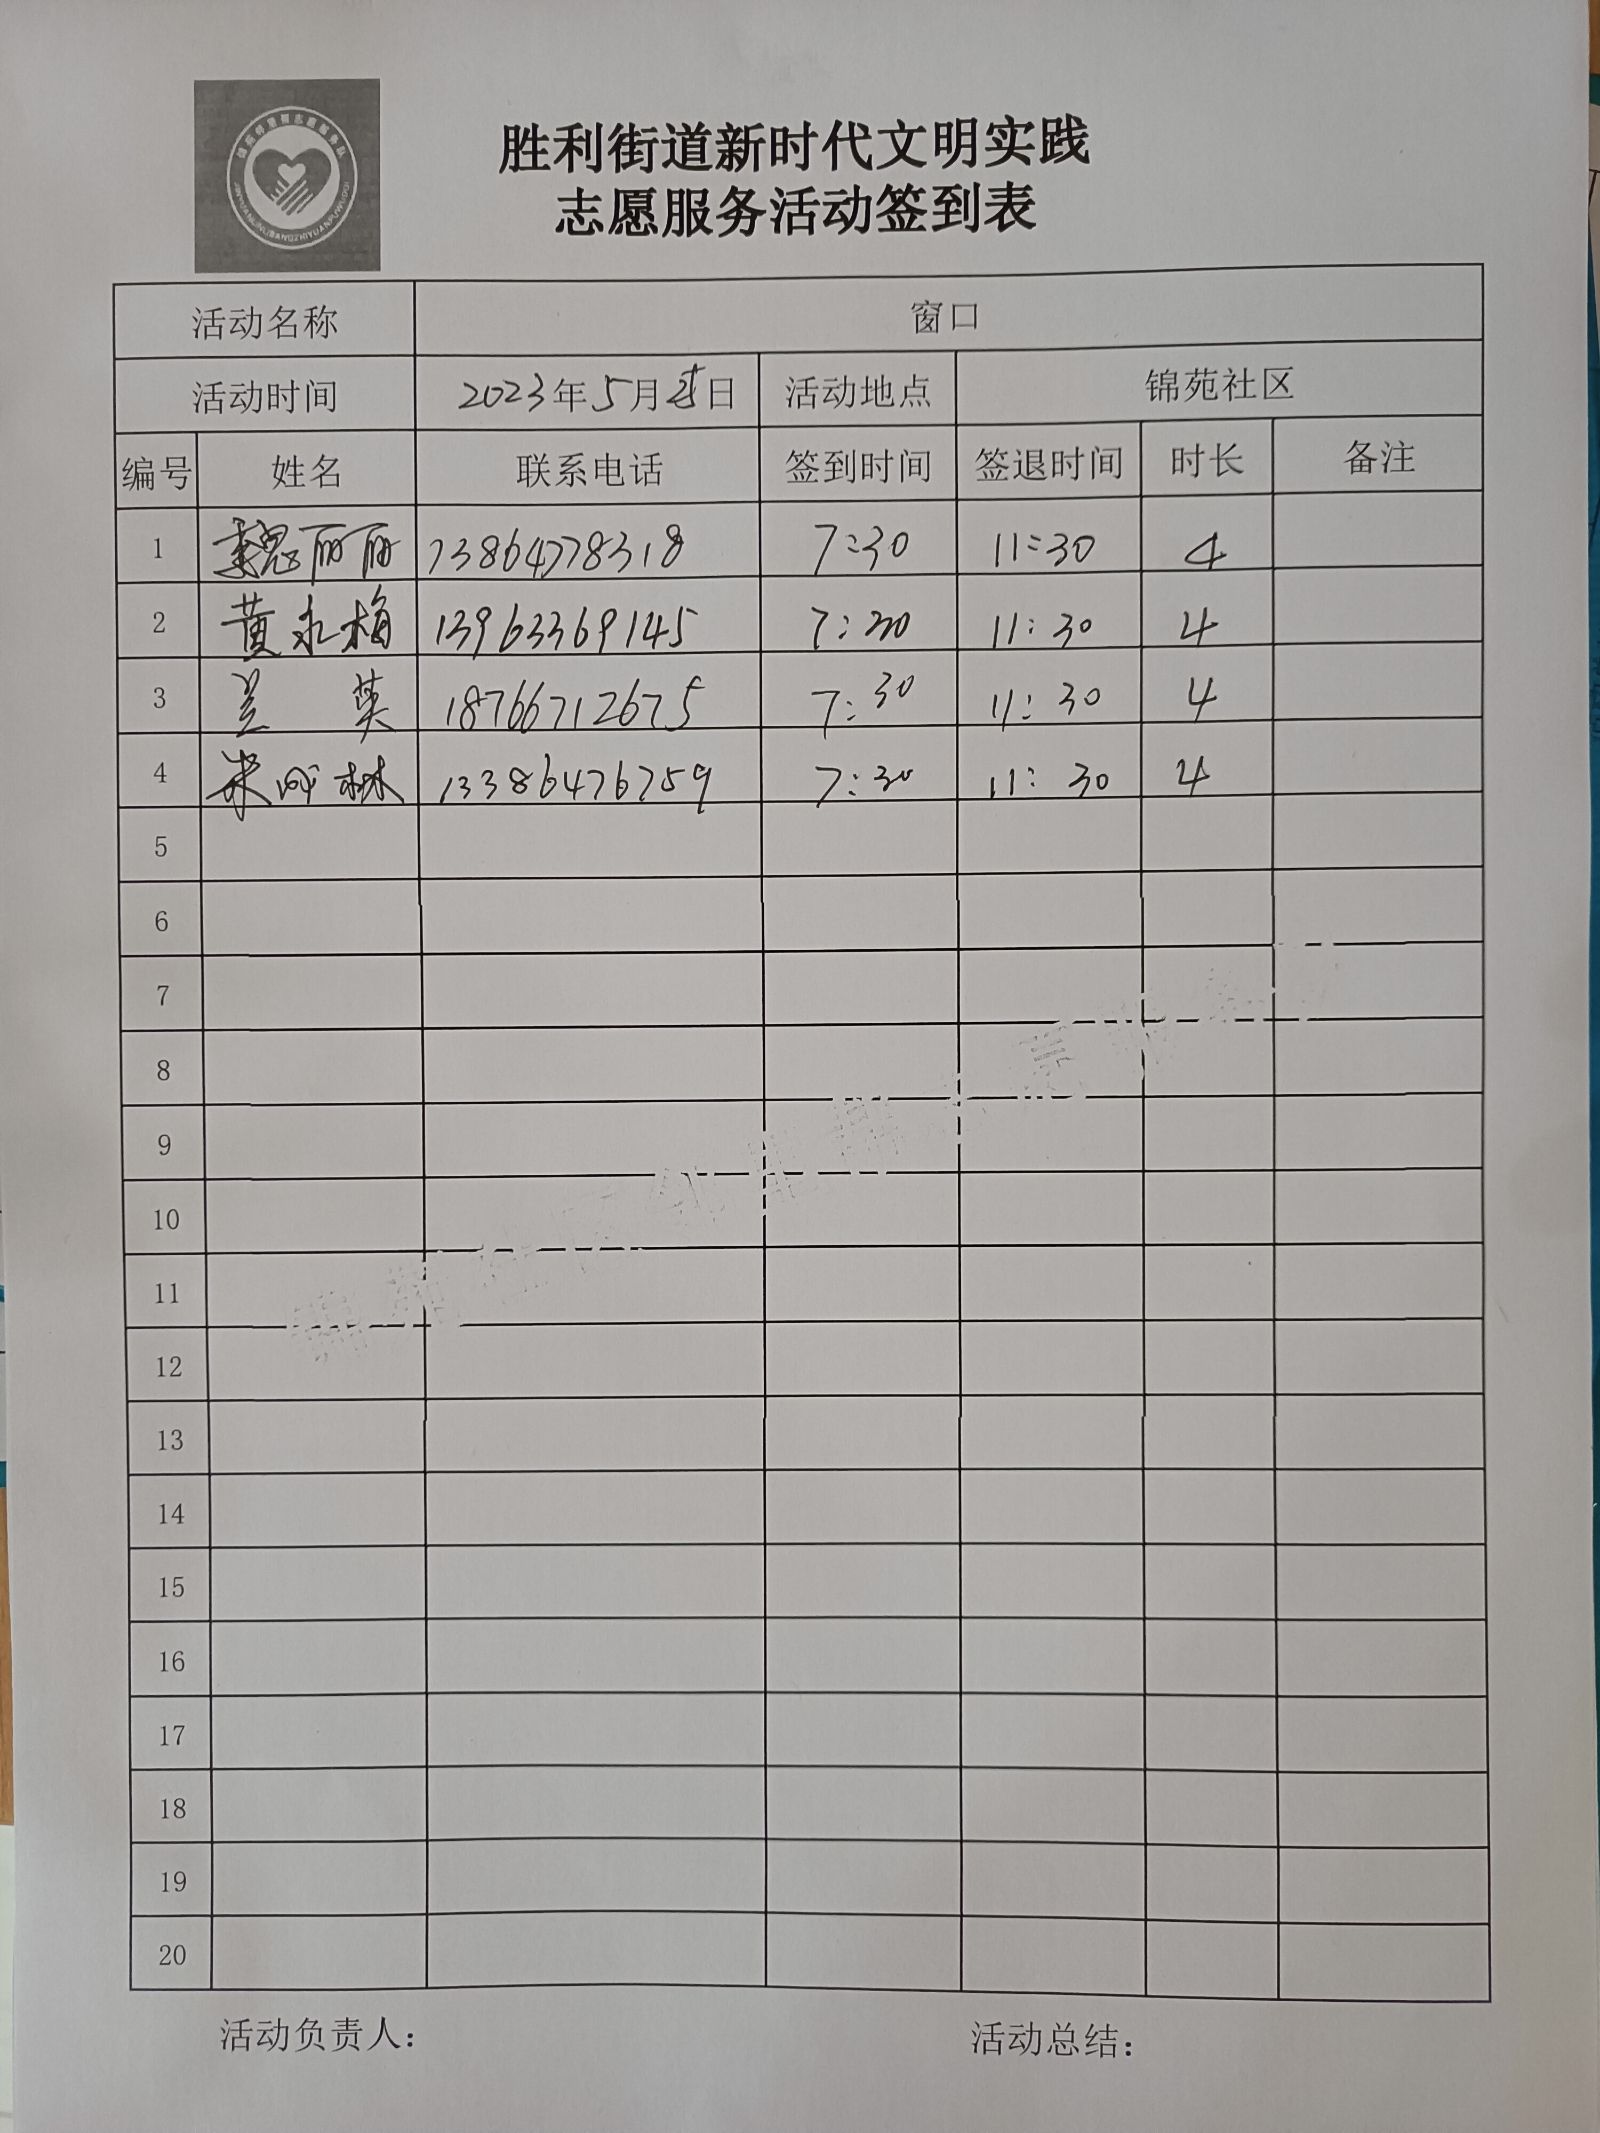 胜利街道新时代文明实践
志愿服务活动签到表
活动名称 窗口
活动时间 2023年5月日 活动地点 锦苑社区
编号 姓名 联系电话 签到时间 签退时间 时长 备注
1 魏丽丽 13864778318 7:30 11:30 4
2 黄永梅 13963369145 7:30 11:30 4
3 兰英 18766712675 7:30 11:30 4
4 林 13386476759 7:30 11:30 4
5
6
7
8
9
10
11
12
13
14
15
16
17
18
19
20
活动负责人: 活动总结: